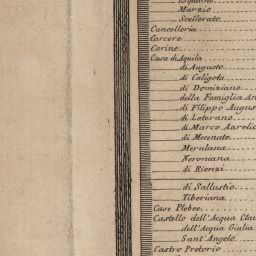 Esquilino
Marzio
Scellerato
Cancelleria
Carcere
Carine
Casa di Aquila
di Augusto
di Caligola
di Domiziano
della Famiglia An
di Filippo Augus
di Laterano
di Marco Aurelio
di Mecenate
Merulana
Neroniana
di Rienzi
di Sallustio
Tiberiana
Case Plebee
Castello dell'Acqua Clau
dell'Acqua Giulia
Sant'Angelo
Castro Pretorio